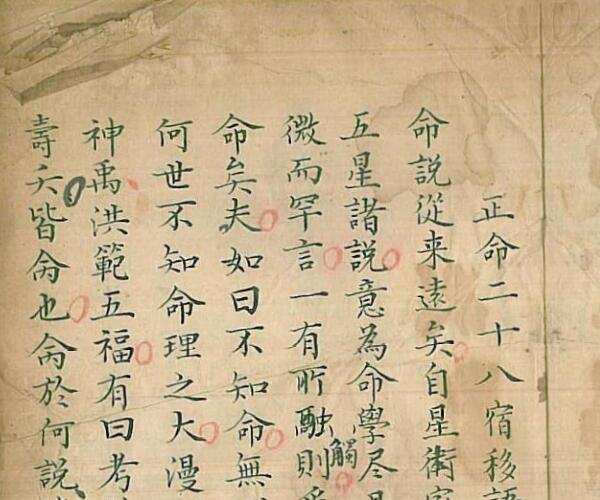 正命二十八宿移
命說從来遠矣自星術
五星諸說意為命學尽
微而罕言一有所融則
觸
命矣夫如曰不知命無
何世不知命理之大漫
神禹洪範五福有曰考
壽夭皆命也命於何説